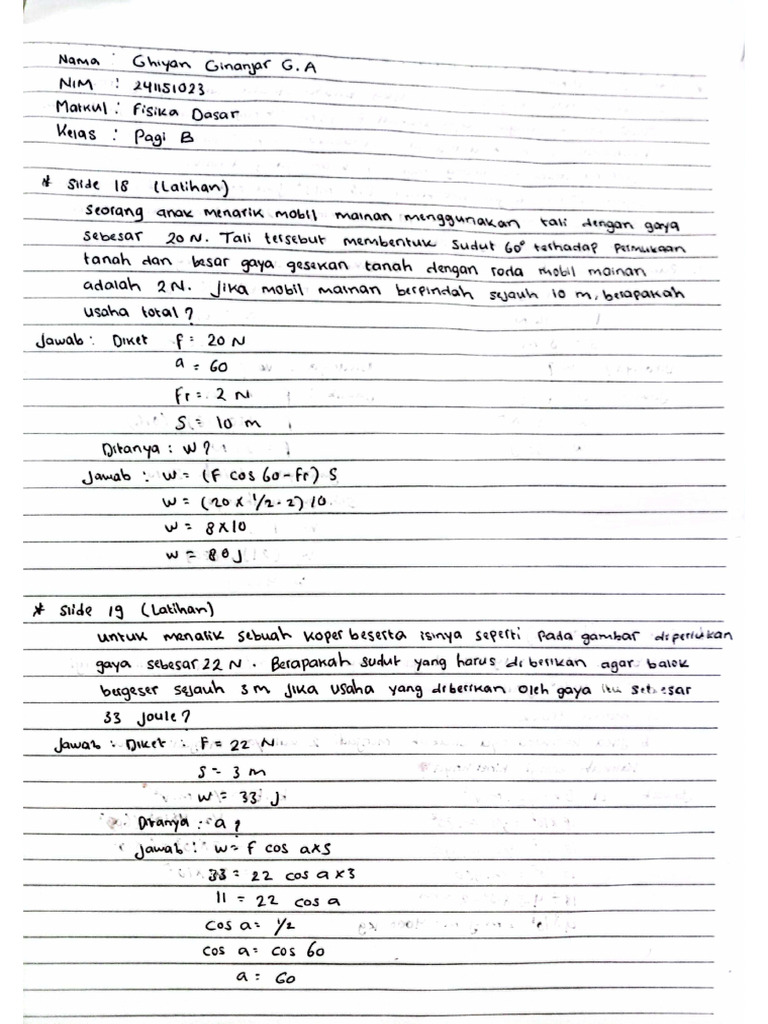 Nama : Ghiyan Ginanjar G.A
NIM : 241151023
Matkul : Fisika Dasar
Kelas : Pagi B
* Slide 18 (Latihan)
Seorang anak menarik mobil mainan menggunakan tali dengan gaya
sebesar 20 N. Tali tersebut membentuk sudut 60° terhadap permukaan
tanah dan besar gaya gesekan tanah dengan roda mobil mainan
adalah 2 N. Jika mobil mainan berpindah sejauh 10 m, berapakah
usaha total ?
Jawab : Diket f = 20 N
a = 60
Fr = 2 N
S = 10 m
Ditanya : W ?
Jawab : W = (F cos 60 - Fr) S
W = (20 x 1/2 - 2) 10
W = 8 x 10
W = 80 J
* Slide 19 (Latihan)
Untuk menarik sebuah koper beserta isinya seperti pada gambar diperlukan
gaya sebesar 22 N. Berapakah sudut yang harus diberikan agar balok
bergeser sejauh 3 m jika usaha yang diberikan oleh gaya itu sebesar
33 joule ?
Jawab : Diket : F = 22 N
S = 3 m
W = 33 J
Ditanya : a ?
Jawab : W = f cos a x S
33 = 22 cos a x 3
11 = 22 cos a
cos a = 1/2
cos a = cos 60
a = 60